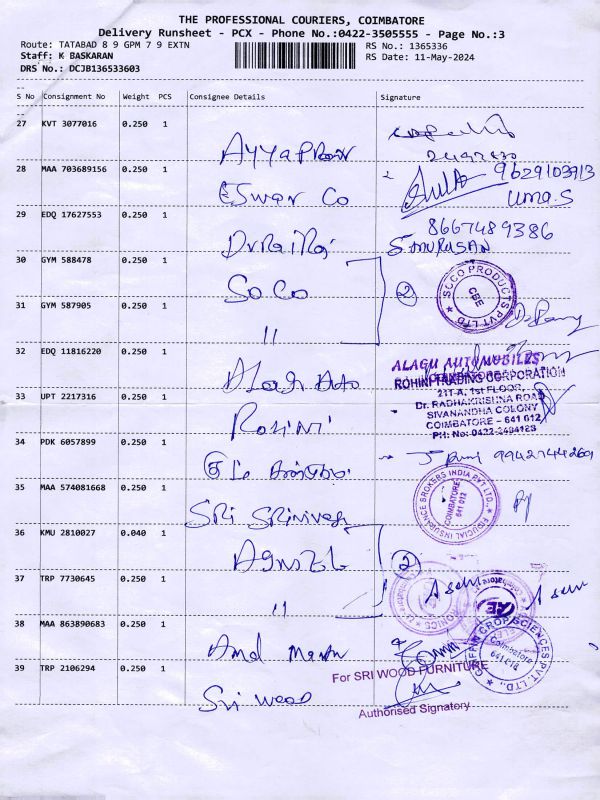 THE PROFESSIONAL COURIERS, COIMBATORE
Delivery Runsheet - PCX - Phone No.:0422-3505555 - Page No.:3
Route: TATABAD 8 9 GPM 7 9 EXTN
RS No.: 1365336
Staff: K BASKARAN
RS Date: 11-May-2024
DRS No.: DCJB136533603
S No Consignment No Weight PCS Consignee Details Signature
27 KVT 3077016 0.250 1
Ayyappan
28 MAA 703689156 0.250 1
9629103913
Eswar Co
Uma.S
29 EDQ 17627553 0.250 1
8667489386
S.MURUSAN
30 GYM 588478 0.250 1
SoCo
2
SOCO PRODUCTS PVT LTD
CBE
31 GYM 587905 0.250 1
"
32 EDQ 11816220 0.250 1
ALAGU AUTOMOBILES
ROHINI TRADING CORPORATION
Auto
211-A, 1st FLOOR,
33 UPT 2217316 0.250 1
Dr. RADHAKRISHNA ROAD
SIVANANDHA COLONY
Rohini
COIMBATORE - 641 012
PH: No: 0422-2494128
34 PDK 6057899 0.250 1
35 MAA 574081668 0.250 1
FIDUCIAL INSURANCE BROKERS INDIA PVT.LTD.,
COIMBATORE
641 012
Sri Srinivas
36 KMU 2810027 0.040 1
2
37 TRP 7730645 0.250 1
"
38 MAA 863890683 0.250 1
CROP SCIENCES PVT. LTD.,
Coimbatore
39 TRP 2106294 0.250 1
For SRI WOOD FURNITURE
Sri wood
Authorised Signatory